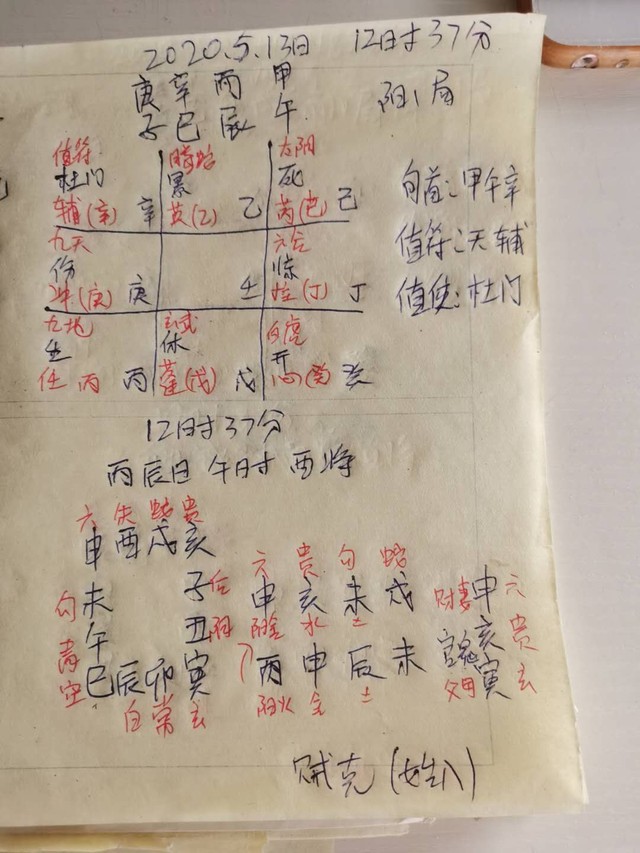 2020.5.13日 12时37分
庚 辛 丙 甲
子 巳 辰 午 阳1局
值符 螣蛇 太阴
杜门 景 死
辅(辛) 辛 英(乙) 乙 芮(己) 己
旬首:甲午辛
九天 六合
伤 惊
冲(庚) 庚 壬 柱(丁) 丁
值符:天辅
值使:杜门
九地 玄武 白虎
生 休 开
任 丙 丙 蓬(戊) 戊 心(癸) 癸
12时37分
丙辰日 午时 酉将
六 朱 蛇 贵
申 酉 戌 亥
勾 未 子 后
青 午 丑 阴
空 巳 辰 卯 寅
白 常 玄
六 贵 勾 蛇
申 亥 未 戌
阳金 水 土
丙 申 辰 未
阳火 金 土
财 申 六
亥 贵
父母 寅 玄
贼克(始入)